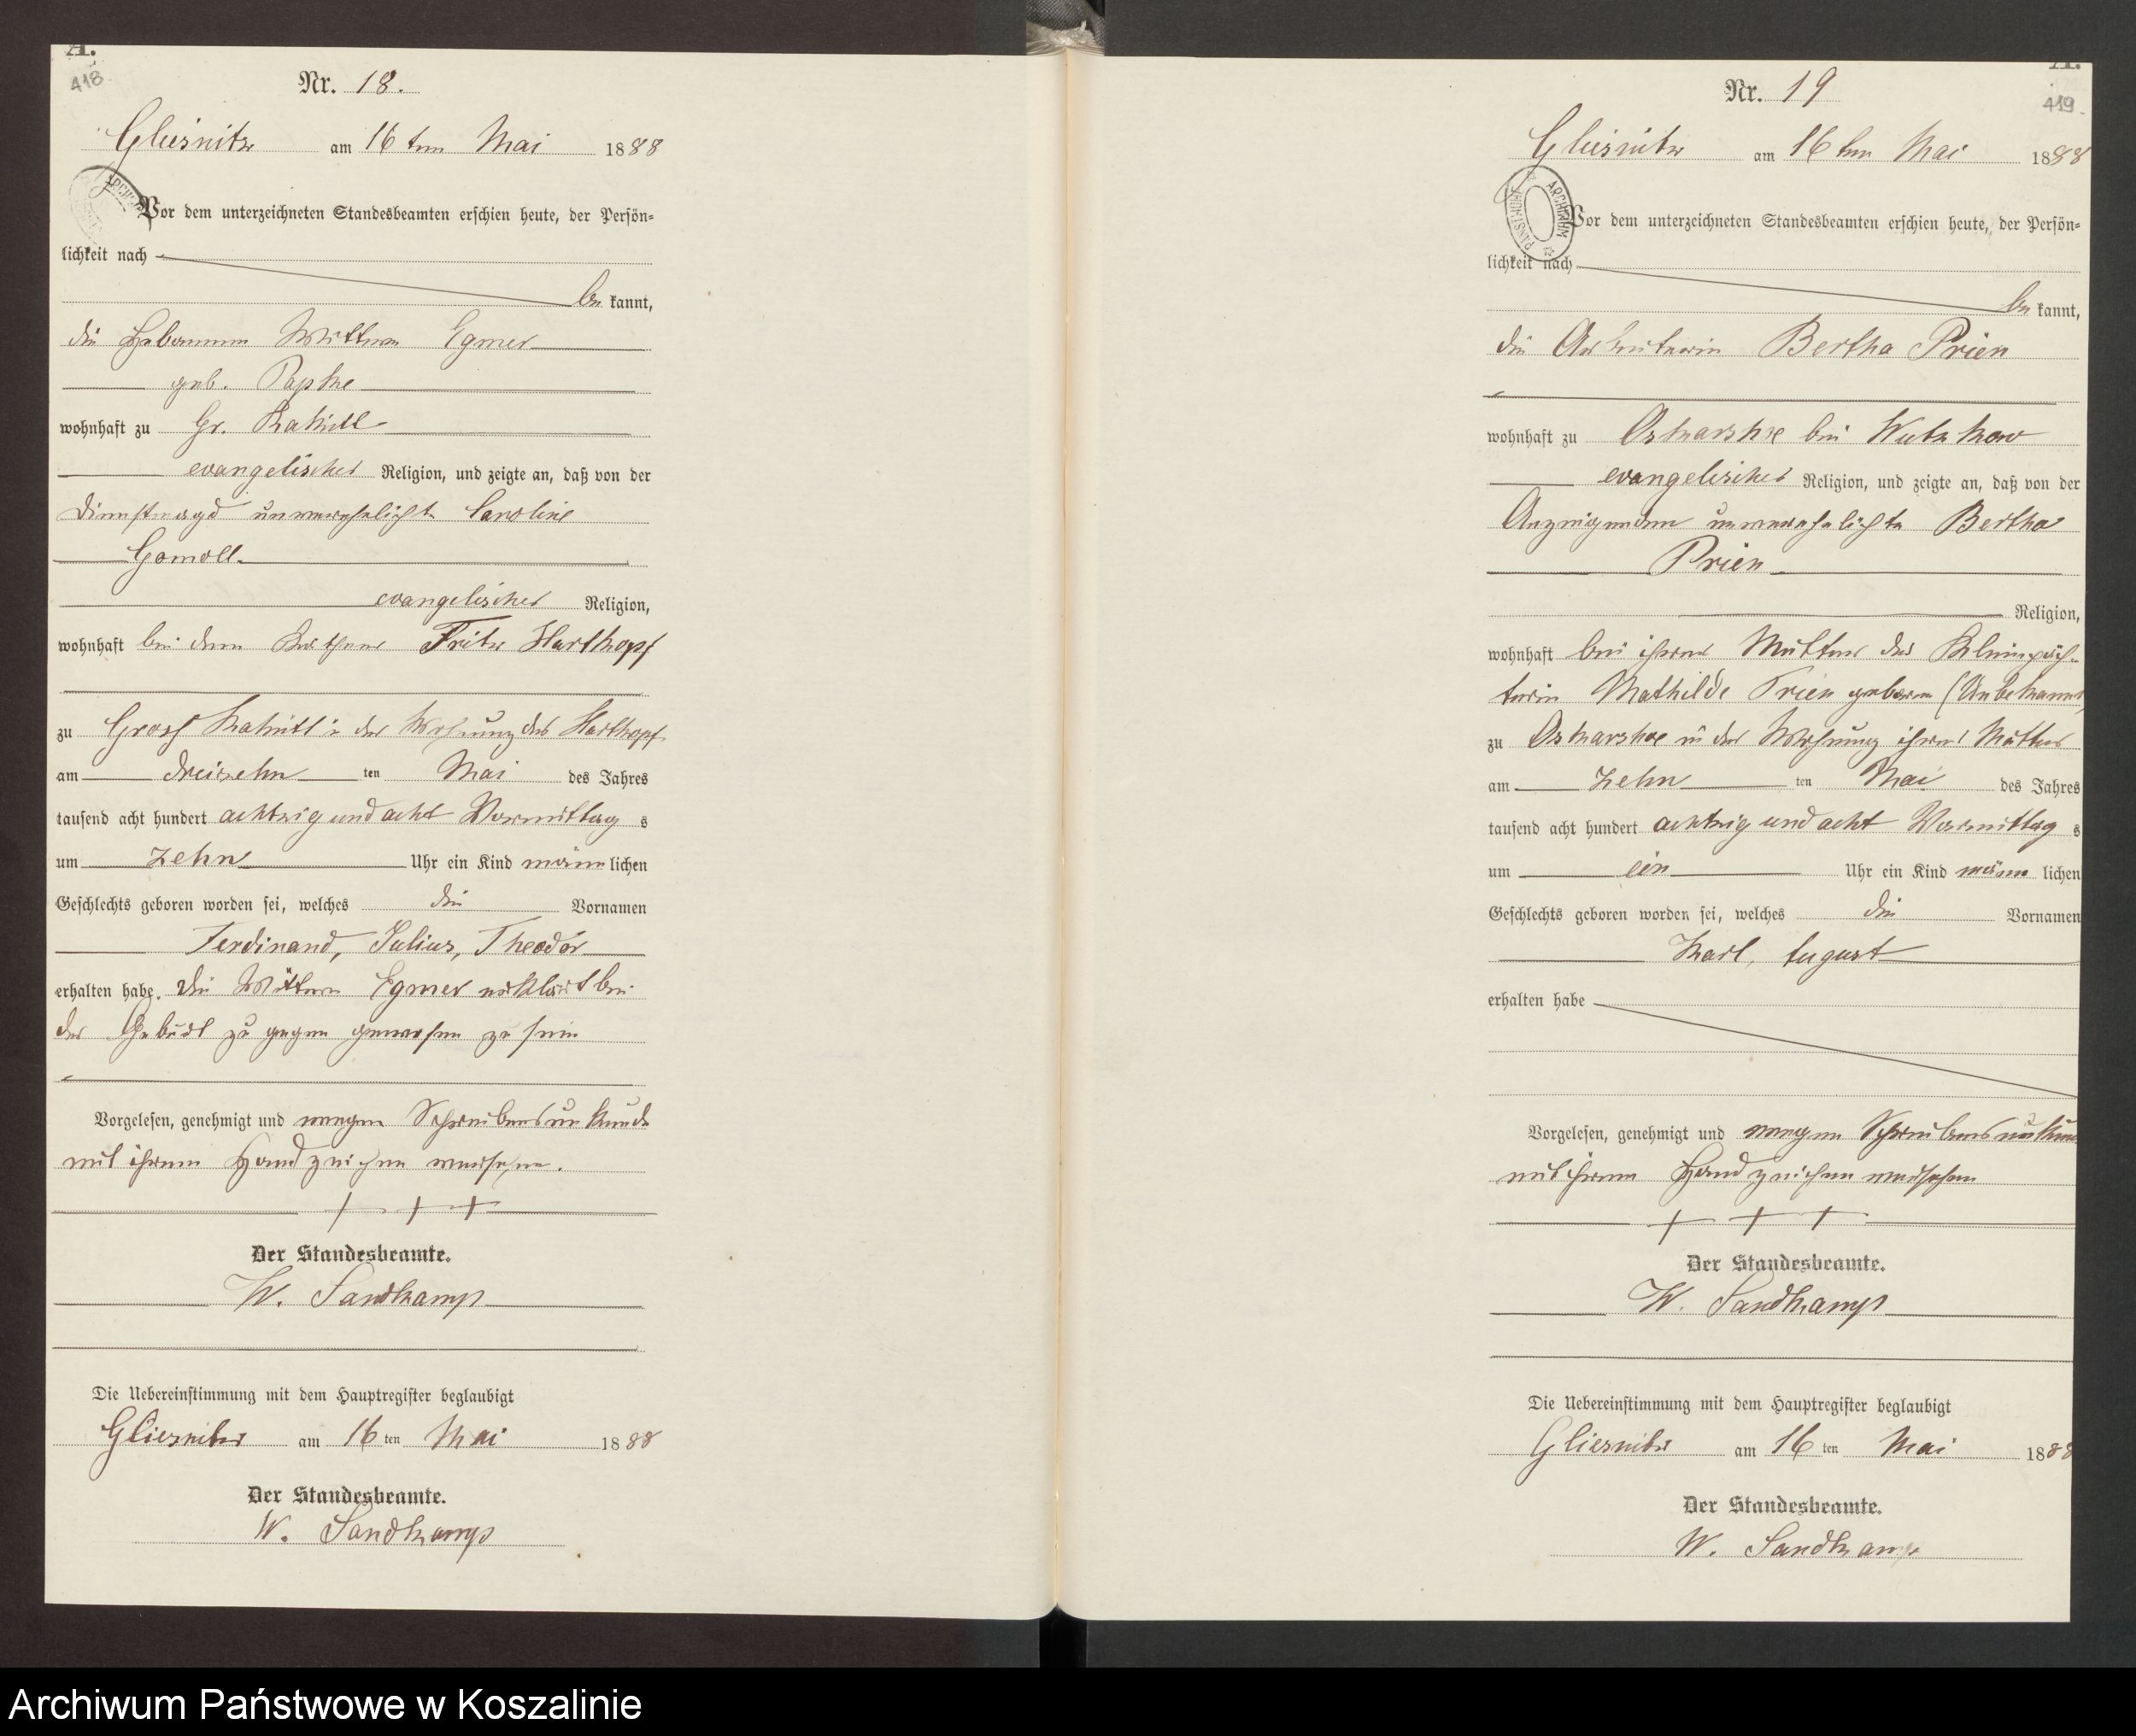 A.
418
Nr. 18.
Gliesnitz am 16 ten Mai 1888
Vor dem unterzeichneten Standesbeamten erschien heute, der Persön-
lichkeit nach
be kannt,
die Hebamme Wittwe Egmer
geb. Papke
wohnhaft zu Gr. Rakitt
evangelischer Religion, und zeigte an, daß von der
Dienstmagd unverehelichte Caroline
Gomoll
evangelischer Religion,
wohnhaft bei dem Fritz Harthopf
zu Gross Rakitt in der Wohnung des Harthopf
am dreizehn ten Mai des Jahres
tausend acht hundert achtzig und acht Vormittag s
um zehn Uhr ein Kind männ lichen
Geschlechts geboren worden sei, welches die Vornamen
Ferdinand, Julius, Theodor
erhalten habe. Die Wittwe Egmer erklärt bei
der Geburt zu gegen gewesen zu sein
Vorgelesen, genehmigt und wegen Schreibensunkunde
mit ihrem Handzeichen versehen.
+ + +
Der Standesbeamte.
W. Sandkamp
Die Uebereinstimmung mit dem Hauptregister beglaubigt
Gliesnitz am 16 ten Mai 1888
Der Standesbeamte.
W. Sandkamp
A.
419
Nr. 19
Gliesnitz am 16 ten Mai 1888
ARCHIWUM PAŃSTWOWE
Vor dem unterzeichneten Standesbeamten erschien heute, der Persön-
lichkeit nach
be kannt,
die Arbeiterin Bertha Prien
wohnhaft zu Oskarshoe bei Wutzkow
evangelischer Religion, und zeigte an, daß von der
Anzeigenden unverehelichte Bertha
Prien
Religion,
wohnhaft bei ihrer Mutter der Kleinpäch-
terin Mathilde Prien geboren (Unbekannt)
zu Oskarshoe in der Wohnung ihrer Mutter
am zehn ten Mai des Jahres
tausend acht hundert achtzig und acht Vormittag s
um ein Uhr ein Kind männ lichen
Geschlechts geboren worden sei, welches die Vornamen
Karl, August
erhalten habe
Vorgelesen, genehmigt und wegen Schreibensunkunde
mit ihrem Handzeichen versehen
+ + +
Der Standesbeamte.
W. Sandkamp
Die Uebereinstimmung mit dem Hauptregister beglaubigt
Gliesnitz am 16 ten Mai 1888
Der Standesbeamte.
W. Sandkamp
Archiwum Państwowe w Koszalinie